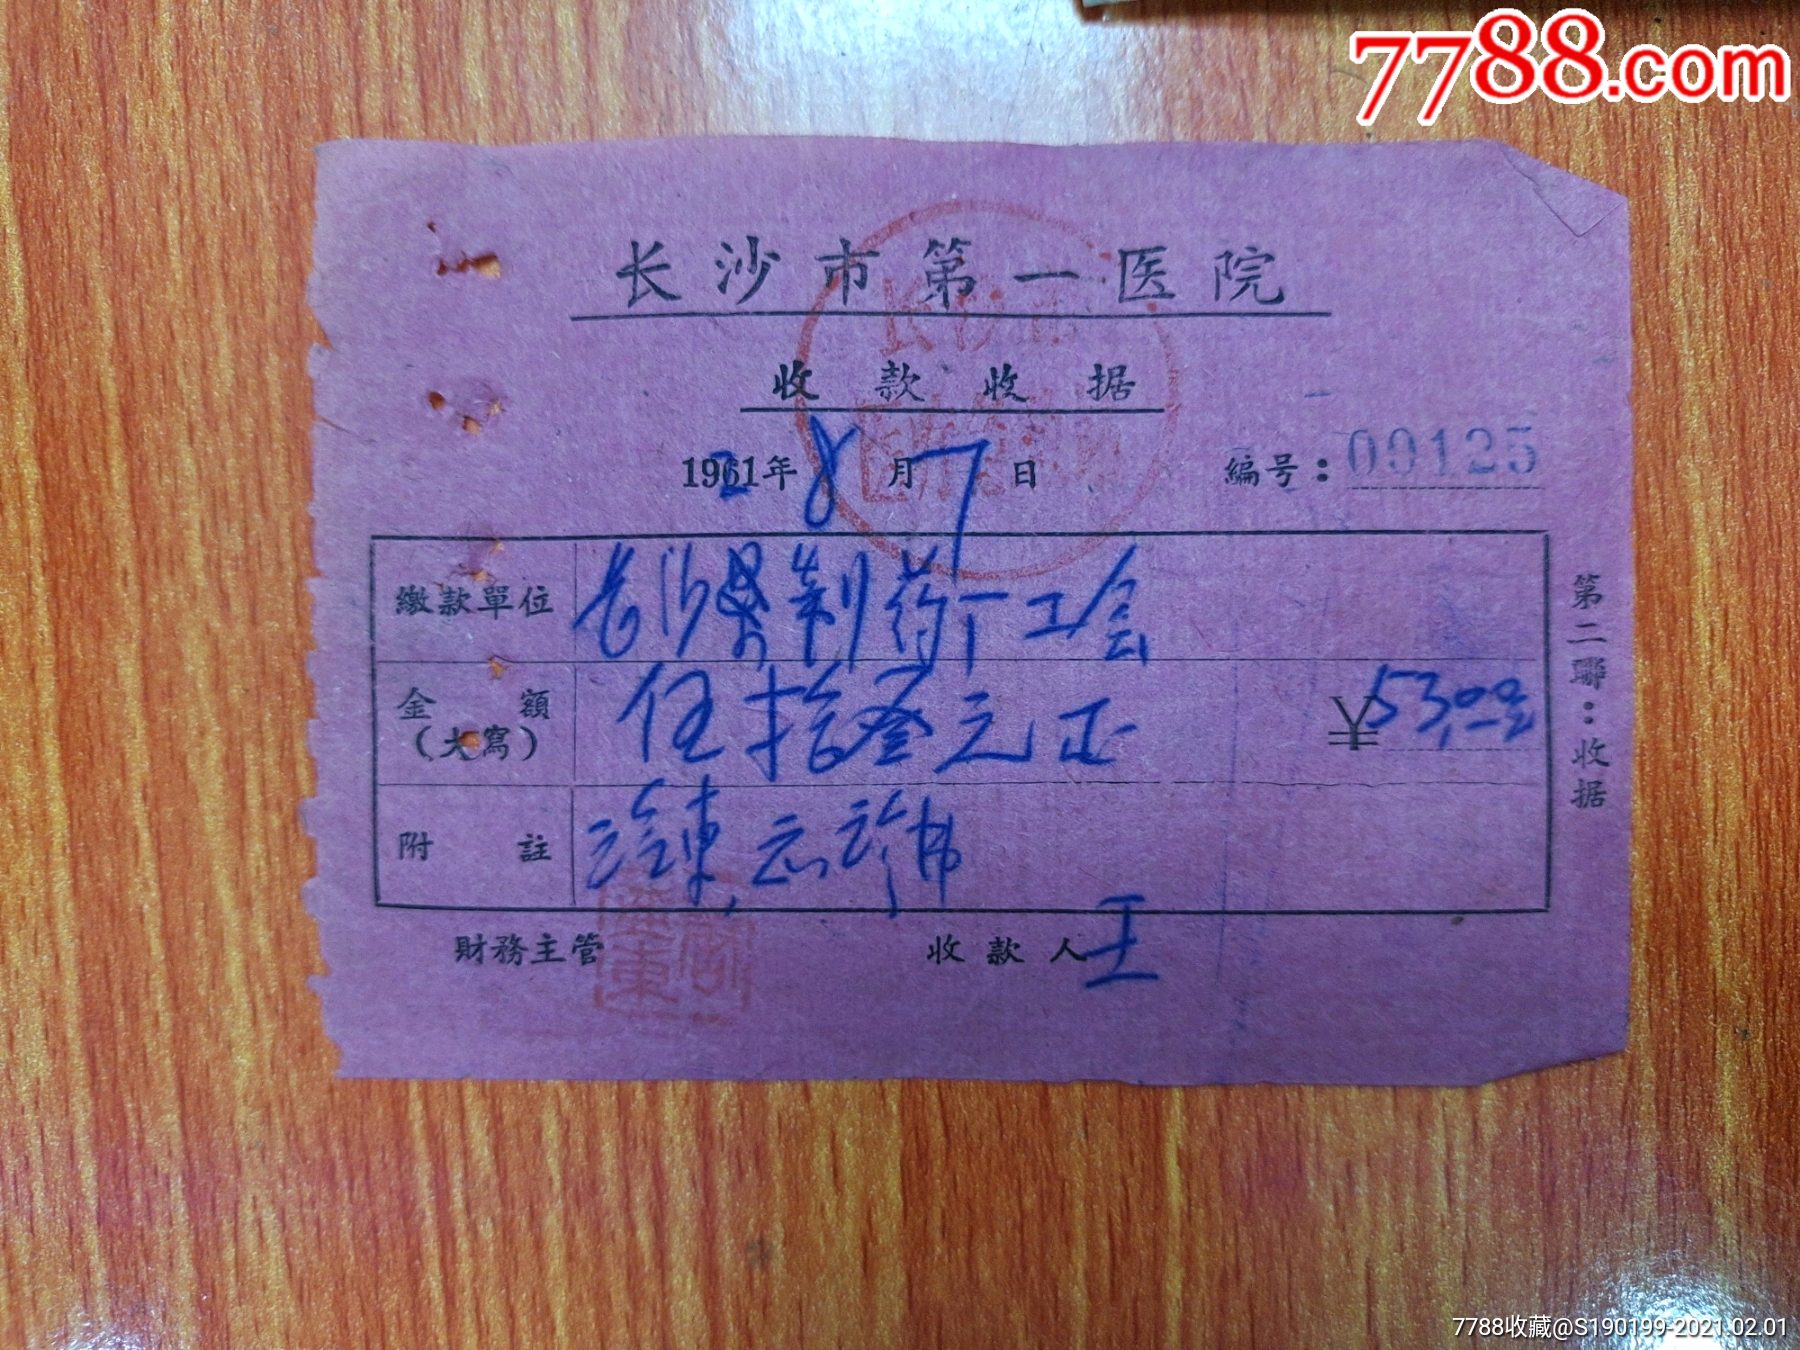 7788.com
长沙市第一医院
收款收据
1961年 2 8月7日 编号：00125
缴款單位 长沙县制药厂工会
金額（大寫） 伍拾叁元正 ￥53.00
附註
財務主管 收款人 王
第二聯：收据
7788收藏@S190199-2021.02.01